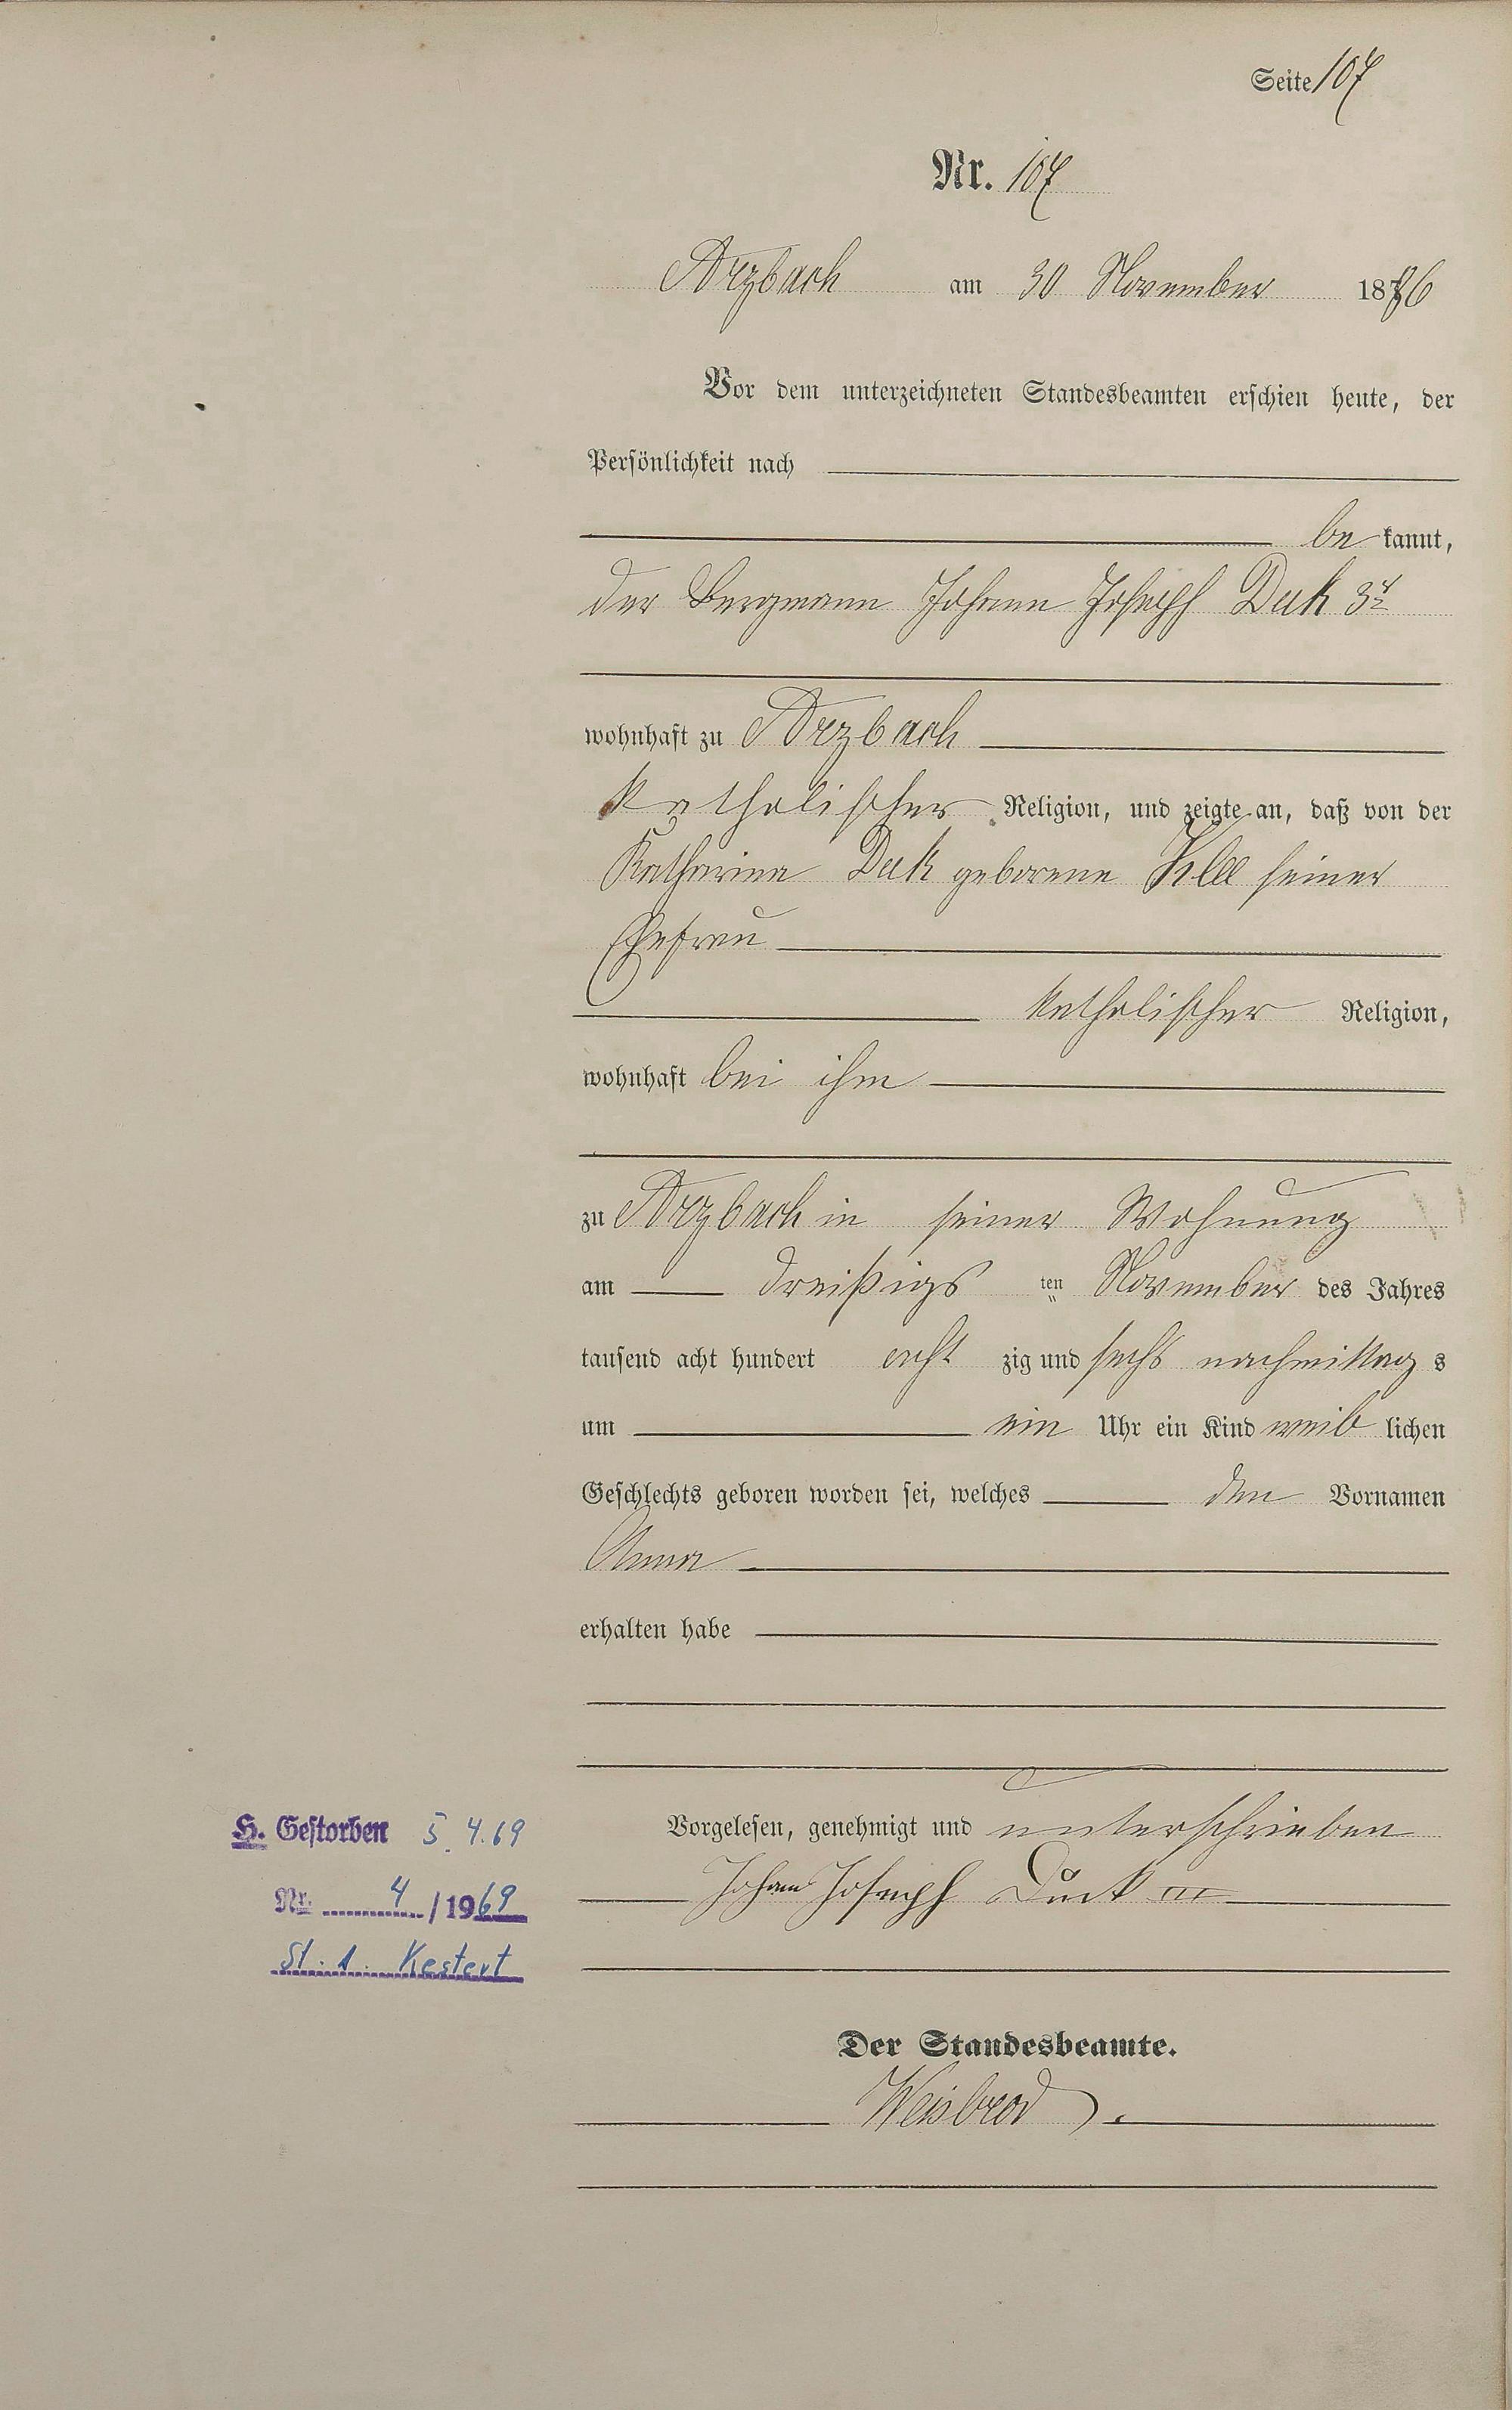 Seite 107
Nr. 107
Arzbach am 30 November 1886
Vor dem unterzeichneten Standesbeamten erschien heute, der
Persönlichkeit nach
be kannt,
der Bergmann Johann Joseph Duk 3r
wohnhaft zu Arzbach
katholischer Religion, und zeigte an, daß von der
Katharina Duk geborene Klee seiner
Ehefrau
katholischer Religion,
wohnhaft bei ihm
zu Arzbach in seiner Wohnung
am dreißigs ten November des Jahres
tausend acht hundert acht zig und sechs nachmittag s
um ein Uhr ein Kind weib lichen
Geschlechts geboren worden sei, welches den Vornamen
Anna
erhalten habe
Vorgelesen, genehmigt und unterschrieben
Johann Joseph III
Der Standesbeamte.
Weisbrod.
H. Gestorben 5.4.69
Nr. 4 / 1969
St. A. Kestert